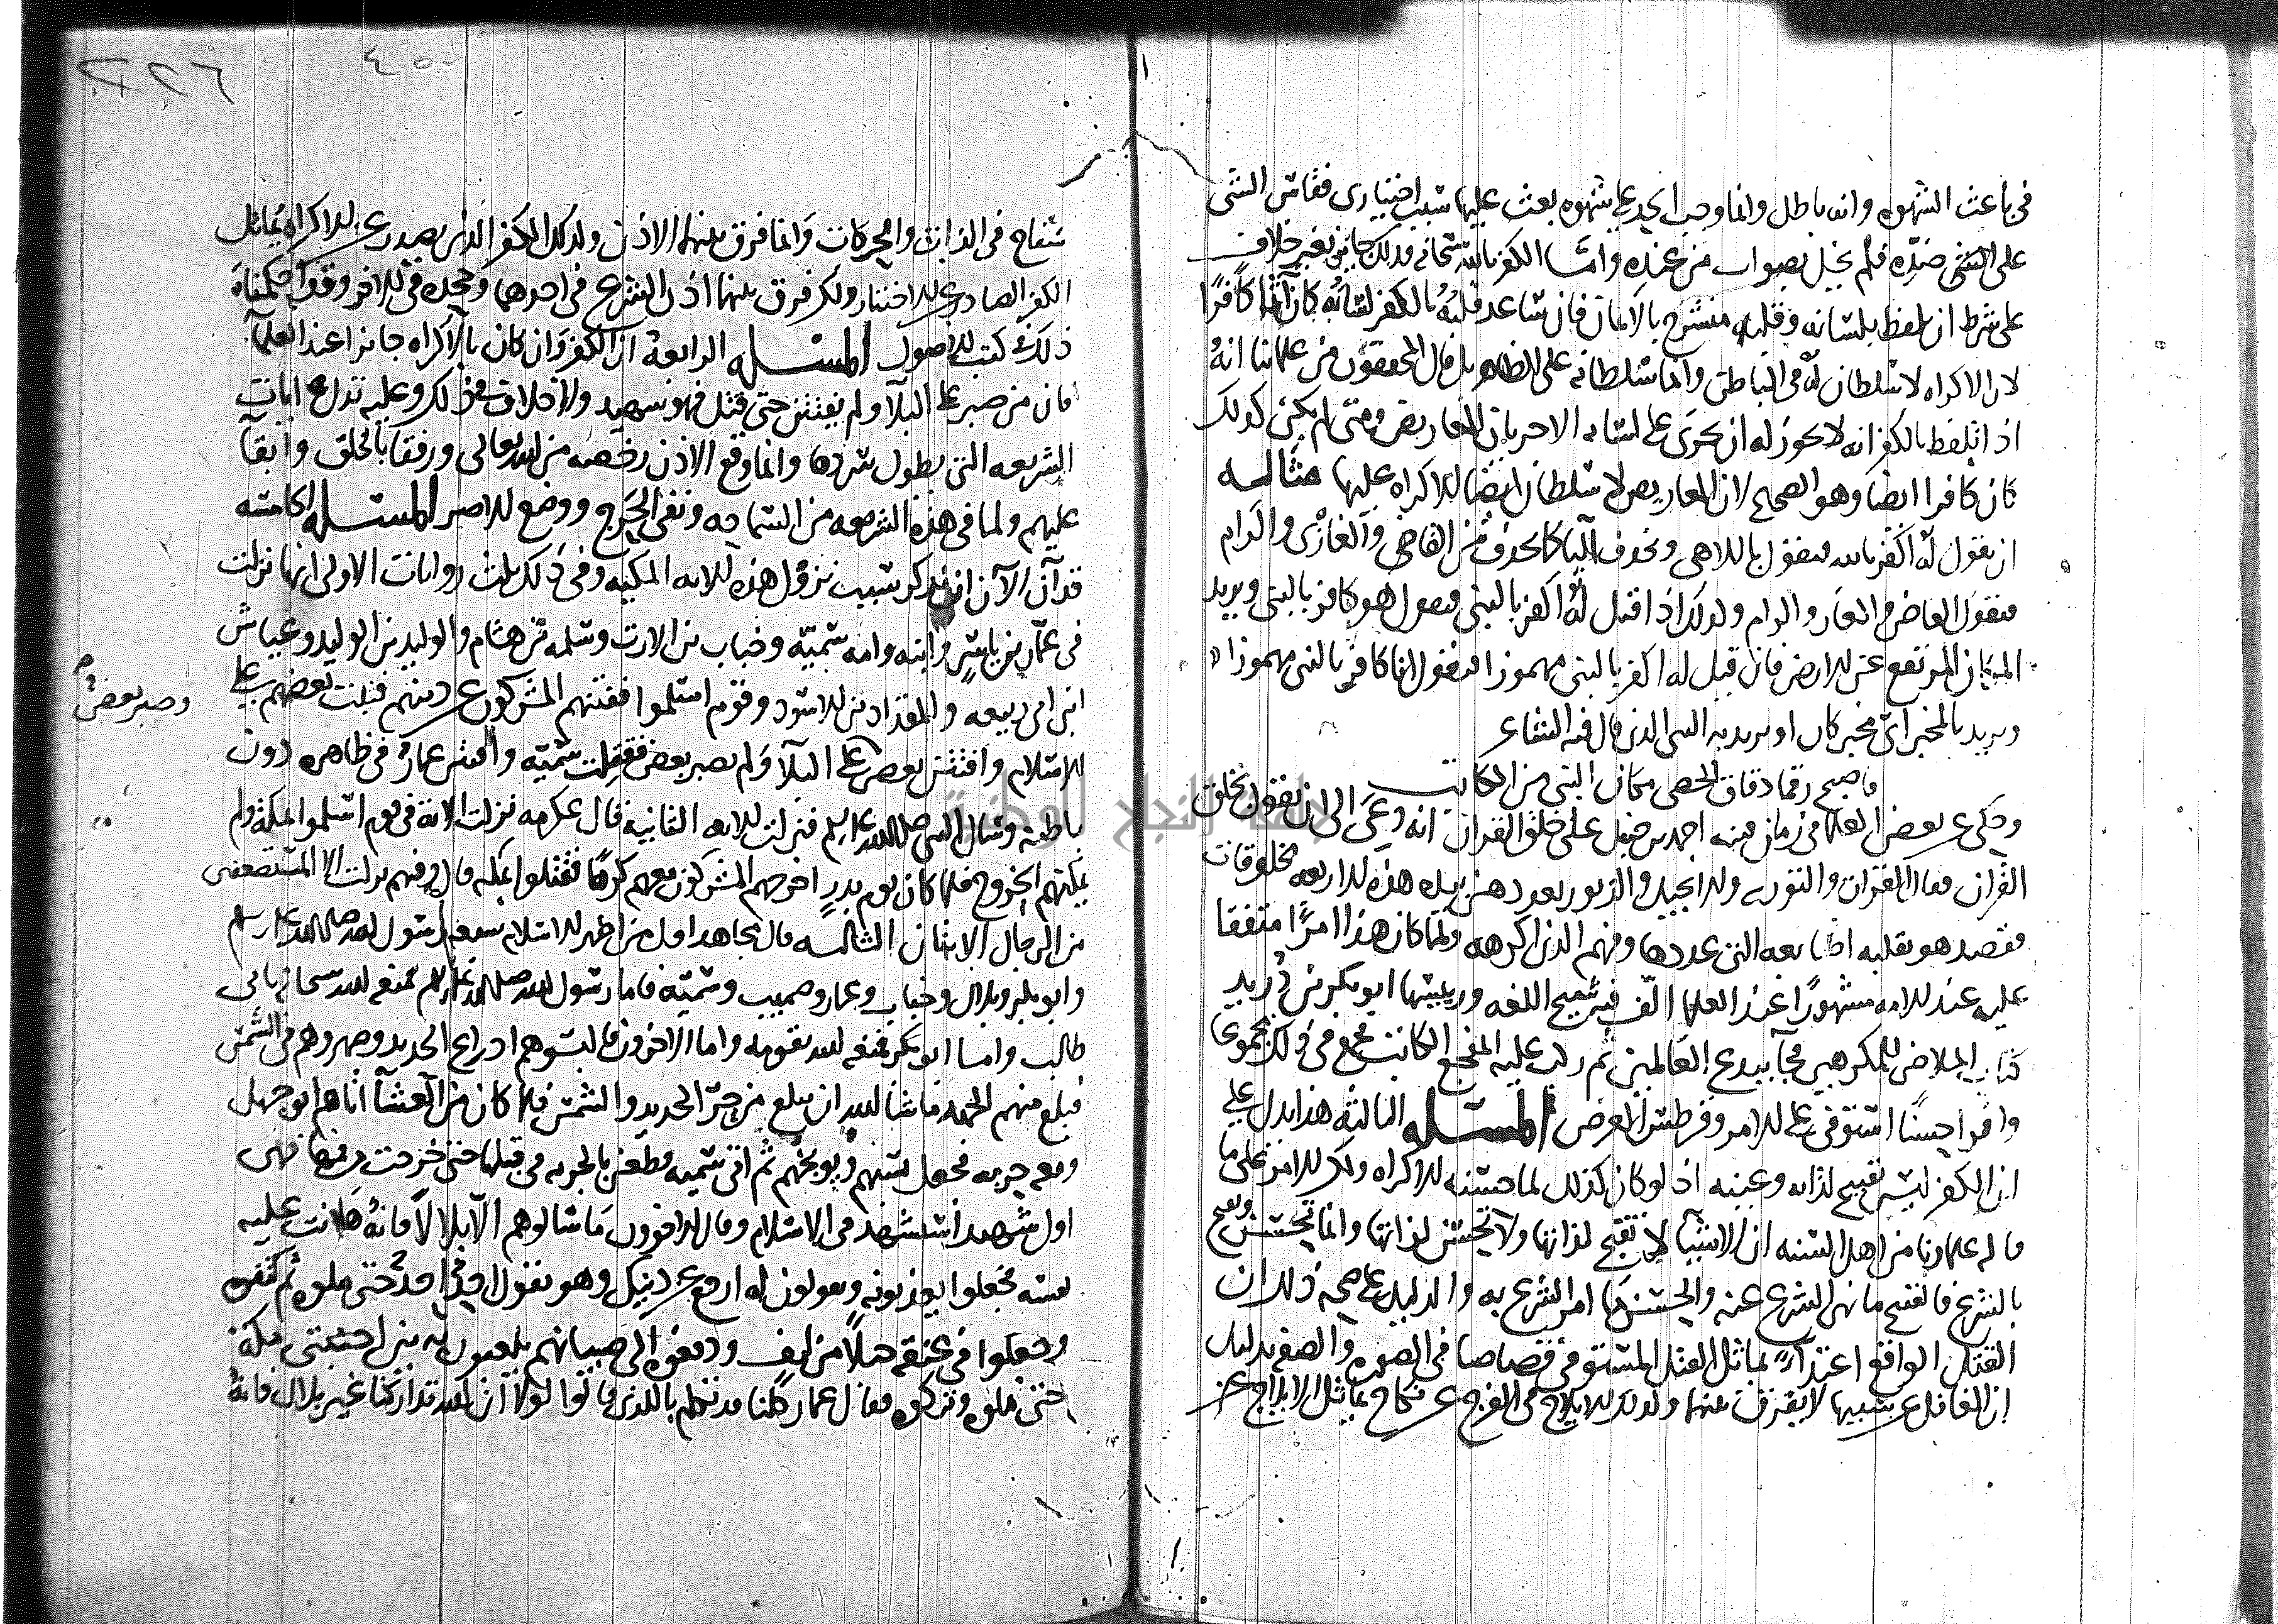 في باعث الشهوه وانه باطل وانما وجب الحد على شهوه بعث عليها سبب اختياري فقاس الشي
على الشي ضده فلم يحل بصواب من عنده وامّا الكفر بالله سبحانه فذلك جايز بغير خلاف
على شرط ان يلفظ بلسانه وقلبه منشرح بالايمان فان ساعد قلبُه بالكفر لسانُه كان آثما كافرًا
لان الاكراه لا سلطان له في الباطن وانما سلطانه على الظاهر بل قال المحققون من علمائنا انهُ
اذا تلفظ بالكفر انه لا يجوز له ان يجري على لسانه الا جريان المعاريض ومتى لم يكن كذلك
كان كافرا ايضا وهو الصحيح لان المعاريض لا سلطان ايضا للاكراه عليها مثاله
ان يقول له اكفر بالله فيقول باللاهي ويحذف اليا كما يحذف من القاضي والغازي والرام
فيقول القاض والغاز والرام ولذلك اذا قيل له اكفر بالنبي فيقول هو كافر بالنبي ويريد
المكان المرتفع عن الارض فان قيل له اكفر بالنبي مهموزا فيقول انا كافر بالنبي مهموزا
ويريد بالمخبر اي مخبر كان او يريد به النبي الذي قال فيه الشاعر
فاصبح رقما دقاق الحصى مكان النبي من الكاتب
وحكي عن بعض العلما في زمان فتنه احمد بن حنبل على خلق القران انه دعي الى ان يقول بخلق
القران فقال القران والتوريه والانجيل والزبور يعددهن بيده هذه الاربعه مخلوقات
فقصد هو بقلبه اصابعه التي عددها وفهم الذي اكرهه ولما كان هذا امرًا متفقا
عليه عند الامه مشهورًا عند العلما الف فيه شيخ اللغه ورييسها ابو بكر بن دريد
كتاب الملاحن للمكرهين فجا ببدع العالمين ثم ركب عليه المفجع الكاتب فجمع في ذلك مجموعا
وافرا حسنًا استوفى على الامد وقرطس الغرض المسله الثالثه هذا يدل على
ان الكفر ليس بقبيح لذاته وعينه اذ لو كان كذلك لما حسنه الاكراه ولكن الامر على ما
قاله علماونا من اهل السنه ان الاشيا لا تقبح لذاتها ولا تحسن لذاتها وانما تحسن وتقبح
بالشرع فالقبيح ما نهى الشرع عنه والحسن ما امر الشرع به والدليل على صحه ذلك ان
القتل الواقع اعتداءً يماثل القتل المستوفى قصاصا في الصوره والصفه بدليل
ان الغافل عن سببهما لا يفرق بينهما ولذلك الايلاج في الفرج عن نكاح يماثل الايلاج عن
سفاح في الذات والحركات وانما فرق بينهما الاذن ولذلك الكفر الذي يصدر عن الاكراه يماثل
الكفر الصادر عن الاختيار ولكن فرق بينهما اذن الشرع في احدهما وحجره في الاخر وقد احكمناه
ذلك في كتب الاصول المسله الرابعه ان الكفر وان كان بالاكراه جايزا عند العلما
فان من صبر على البلا ولم يفتتن حتى قتل فهو شهيد ولا خلاف في ذلك وعليه تدل اثار
الشريعه التي يطول سردها وانما وقع الاذن رخصه من الله تعالى ورفقا بالخلق وابقا
عليهم ولما في هذه الشريعه من السماحه ونفي الحرج ووضع الاصر المسله الخامسه
قد آن الآن ان نذكر سبب نزول هذه الايه المكيه وفي ذلك ثلث روايات الاولى انها نزلت
في عمّار بن ياسر وابيه وامه سميّه وخباب بن الارت وسلمه بن هشام والوليد بن الوليد وعياش
ابن ابي ربيعه والمقداد بن الاسود وقوم اسلموا ففتنهم المشركون عن دينهم فثبت بعضهم على
وصبر بعض
الاسلام وافتتن بعض على البلا ولم يصبر بعض فقتلت سميّه وافتتن عمار في ظاهره دون
باطنه وسال النبي صلى الله عليه وسلم فنزلت الايه الثانيه قال عكرمه نزلت الايه في قوم اسلموا بمكه ولم
يمكنهم الخروج فلما كان يوم بدر اخرجهم المشركون معهم كرها فقتلوا بمكه قال وفيهم نزلت الا المستضعفين
من الرجال الايتان الثالثه قال مجاهد اول من اظهر الاسلام سبعه رسول الله صلى الله عليه وسلم
وابو بكر وبلال وخباب وعمار وصهيب وسميّه فاما رسول الله صلى الله عليه وسلم فمنعه الله سبحانه بابي
طالب واما ابو بكر فمنعه الله بقومه واما الاخرون فالبسوهم ادراع الحديد وصهروهم في الشمس
فبلغ منهم الجهد ما شا الله ان يبلغ من حر الحديد والشمس فلما كان من العشا اتاهم ابو جهل
ومعه حربه فجعل يسبهم ويوبخهم ثم اتى سميه فطعن بالحربه في قبلها حتى خرجت من فمها فهي
اول شهيد استشهد في الاسلام وقال الاخرون ما سالوهم الا بلالا فانه هانت عليه
نفسه فجعلوا يعذبونه ويقولون له ارجع عن دينك وهو يقول احد احد حتى ملوه ثم كتفوه
وجعلوا في عنقه حبلًا من ليف ودفعوه الى صبيانهم يلعبون به بين اخشبي مكه
حتى ملوه وتركوه فقال عمار كلنا قد تكلم بالذي قالوا لولا ان الله تداركنا غير بلال فانهُ